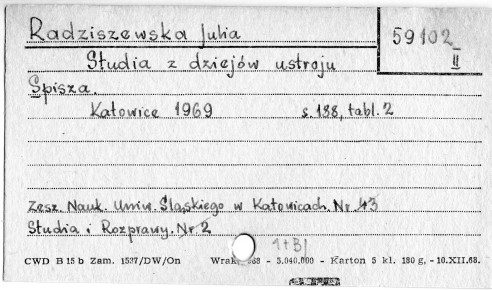 Radziszewska Julia
59102
II
Studia z dziejów ustroju
Spisza.
Katowice 1969 s. 188, tabl. 2
Zesz. Nauk. Uniw. Śląskiego w Katowicach. Nr. 43
Studia i Rozprawy. Nr. 2
1+B
CWD B 15 b Zam. 1537/DW/On 3.040.000 - Karton 5 kl. 180 g, - 10.XII.68.